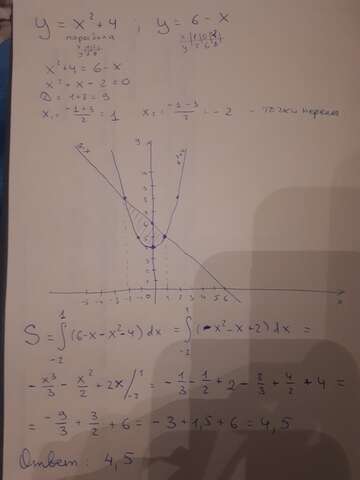 y = x² + 4 ; y = 6 - x
парабола
x² + 4 = 6 - x
x² + x - 2 = 0
D = 1 + 8 = 9
x₁ = (-1+3)/2 = 1 x₂ = (-1-3)/2 = -2 - точки
y
-5 -4 -3 -2 -1 0 1 2 3 4 5 6 x
S = ∫₋₂¹ (6-x-x²-4) dx = ∫₋₂¹ (-x²-x+2) dx =
- x³/3 - x²/2 + 2x |₋₂¹ = - 1/3 - 1/2 + 2 - 8/3 + 4/2 + 4 =
= -9/3 + 3/2 + 6 = -3 + 1,5 + 6 = 4,5
Ответ: 4,5